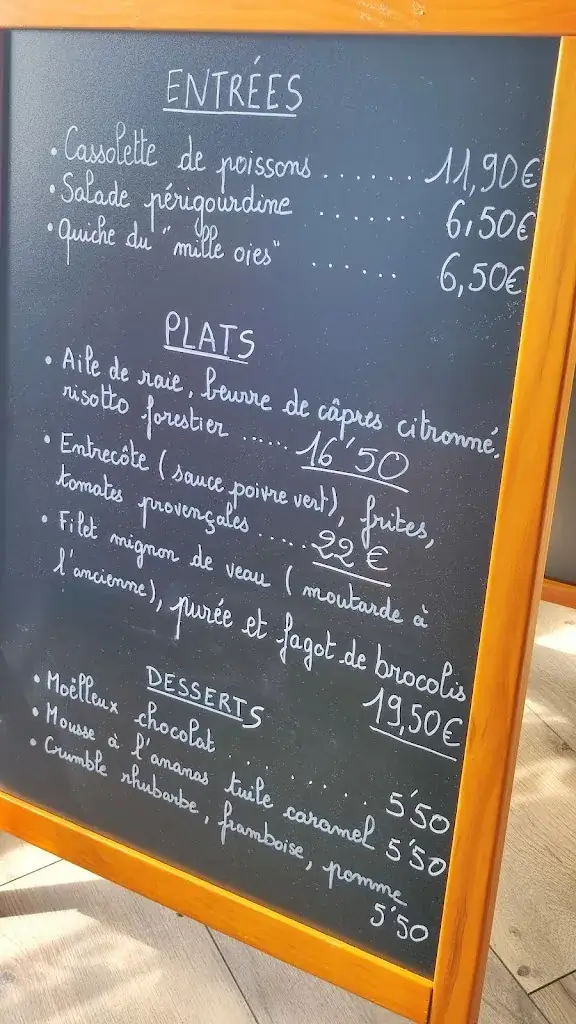 ENTRÉES
• Cassolette de poissons ....... 11,90€
• Salade périgourdine ....... 6,50€
• Quiche du "mille oies" ...... 6,50€
PLATS
• Aile de raie, beurre de câpres citronné,
risotto forestier ...... 16'50
• Entrecôte (sauce poivre vert), frites,
tomates provençales ...... 22€
• Filet mignon de veau (moutarde à
l'ancienne), purée et fagot de brocolis
19,50€
DESSERTS
• Moëlleux chocolat .......... 5'50
• Mousse à l'ananas tuile caramel 5'50
• Crumble rhubarbe, framboise, pomme
5'50